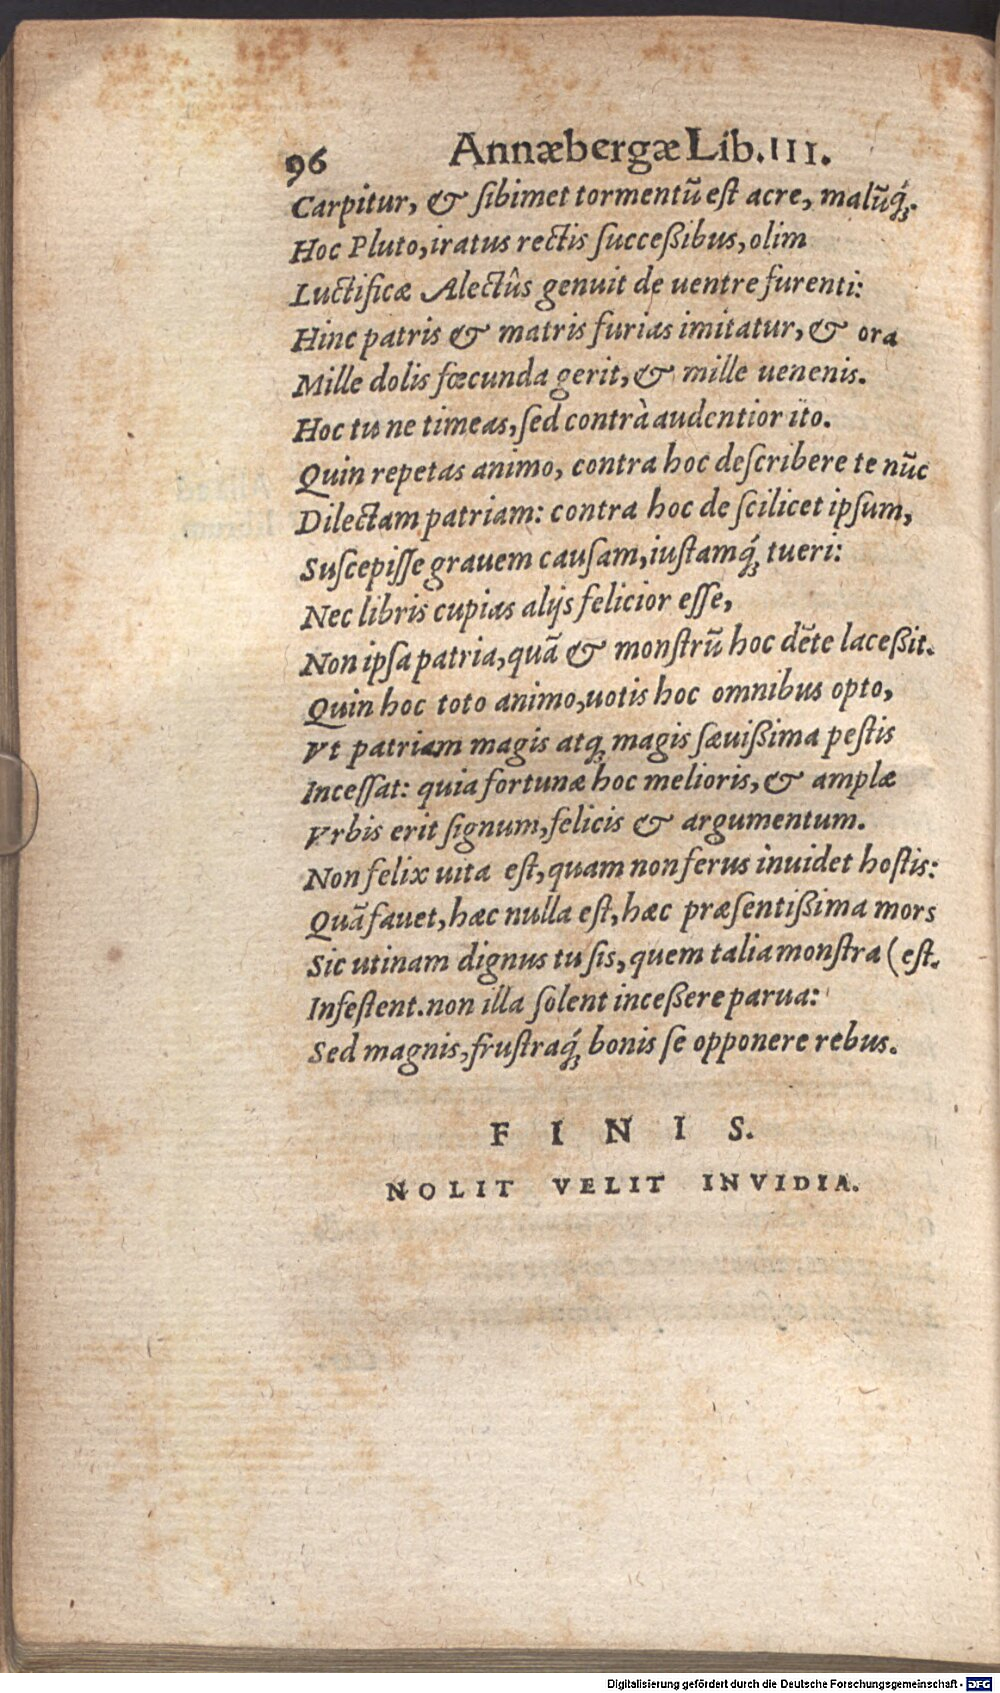 96 Annæbergæ Lib. III.
Carpitur, & ſibimet tormentũ eſt acre, malũq́;.
Hoc Pluto, iratus rectis ſucceßibus, olim
Luctificæ Alectûs genuit de uentre furenti:
Hinc patris & matris furias imitatur, & ora
Mille dolis fœcunda gerit, & mille uenenis.
Hoc tu ne timeas, ſed contrà audentior ito.
Quin repetas animo, contra hoc deſcribere te nũc
Dilectam patriam: contra hoc de ſcilicet ipſum,
Suſcepiſſe grauem cauſam, iuſtamq́; tueri:
Nec libris cupias alijs felicior eſſe,
Non ipſa patria, quã & monſtrũ hoc dẽte laceßit.
Quin hoc toto animo, uotis hoc omnibus opto,
Vt patriam magis atq; magis ſæuißima peſtis
Inceſſat: quia fortunæ hoc melioris, & amplæ
Vrbis erit ſignum, felicis & argumentum.
Non felix uita eſt, quam non ferus inuidet hoſtis:
Quã fauet, hæc nulla eſt, hæc præſentißima mors
Sic utinam dignus tu ſis, quem talia monſtra (eſt.
Infeſtent. non illa ſolent inceßere parua:
Sed magnis, fruſtraq́; bonis ſe opponere rebus.
F I N I S.
NOLIT VELIT INVIDIA.
Digitalisierung gefördert durch die Deutsche Forschungsgemeinschaft - DFG